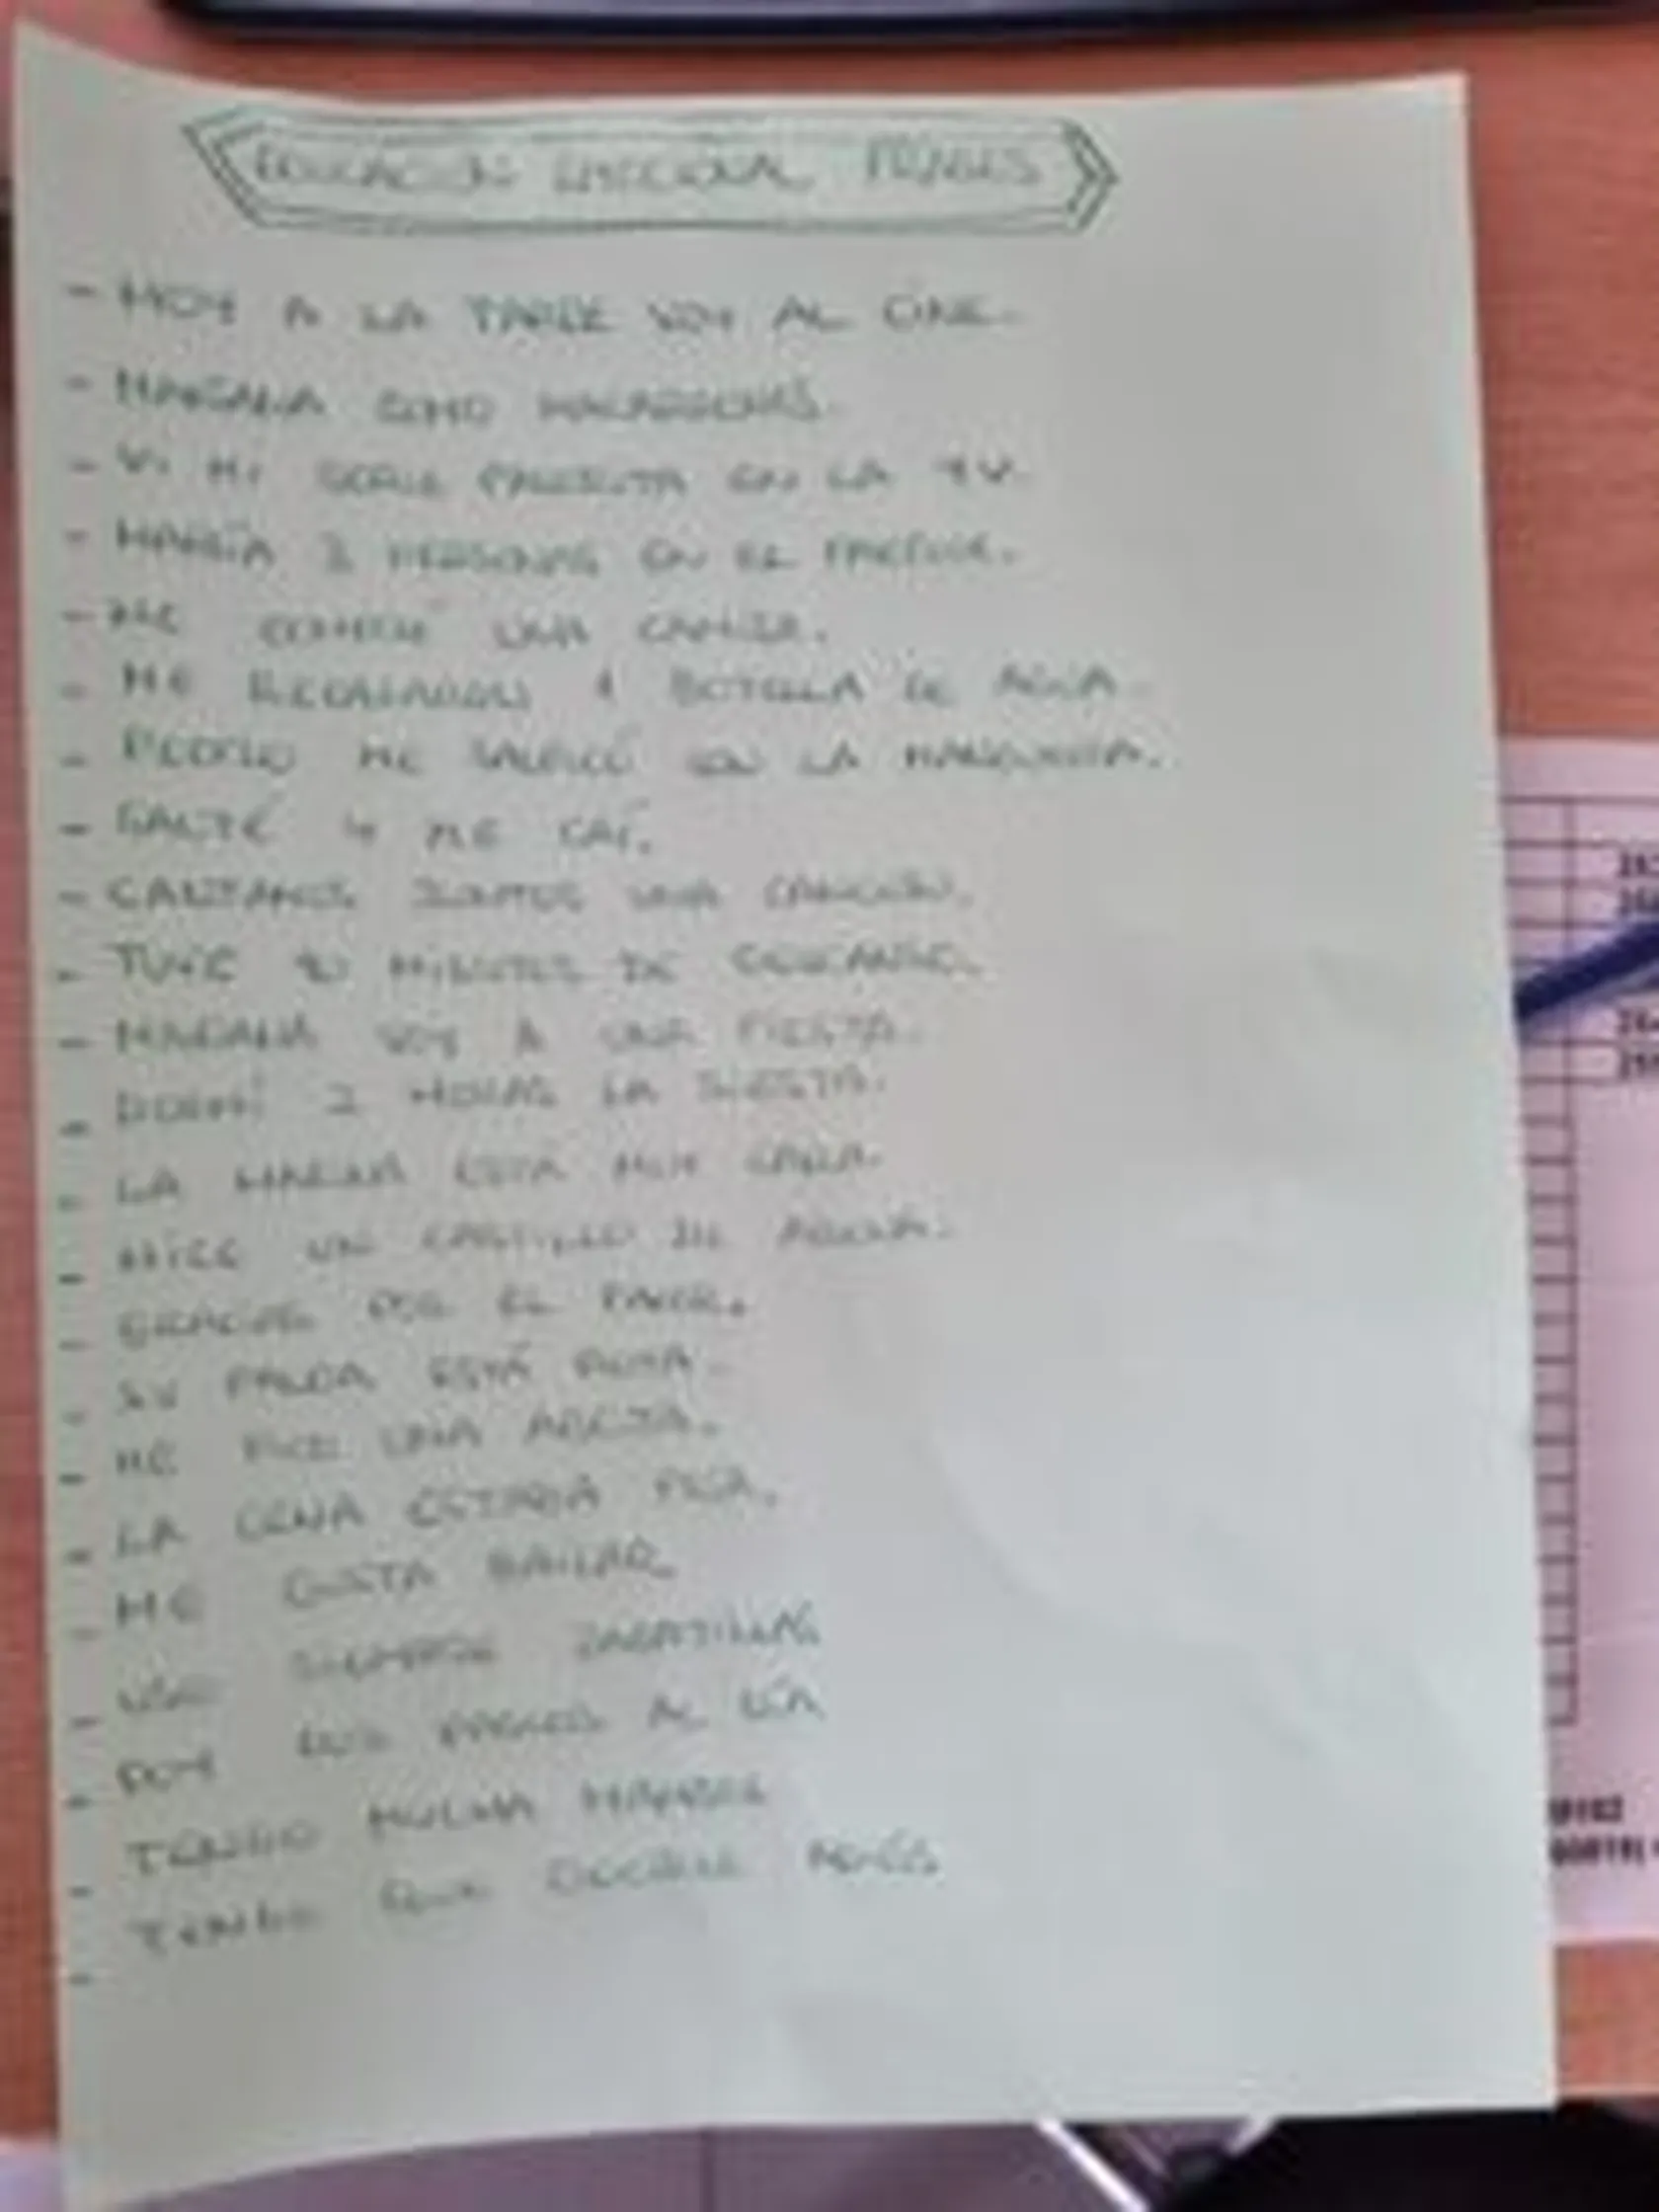 EDUCACIÓN EMOCIONAL FRASES
- HOY A LA TARDE VOY AL CINE.
- MAÑANA COMO MACARRONES.
- VI MI SERIE FAVORITA EN LA TV.
- HABÍA 2 PERSONAS EN EL PARQUE.
- ME COMPRÉ UNA CAMISA.
- ME REGALARON 1 BOTELLA DE AGUA.
- PEDRO ME SALPICÓ CON LA MANGUERA.
- SALTÉ Y ME CAÍ.
- CANTAMOS JUNTOS UNA CANCIÓN.
- TUVE MINUTOS DE DESCANSO.
- MAÑANA VOY A UNA FIESTA.
- DORMÍ 2 HORAS LA SIESTA.
- LA ESTÁ MUY CARA.
- HICE UN CASTILLO DE ARENA.
- GRACIAS POR EL FAVOR.
- SU FALDA ESTÁ ROTA.
- ME PICÓ UNA ABEJA.
- LA CENA ESTABA FRÍA.
- ME GUSTA BAILAR
- USO SIEMPRE ZAPATILLAS
- DOY DOS PASEOS AL DÍA
- TENGO MUCHA HAMBRE
- TENGO QUE DECIRLE ADIÓS
-